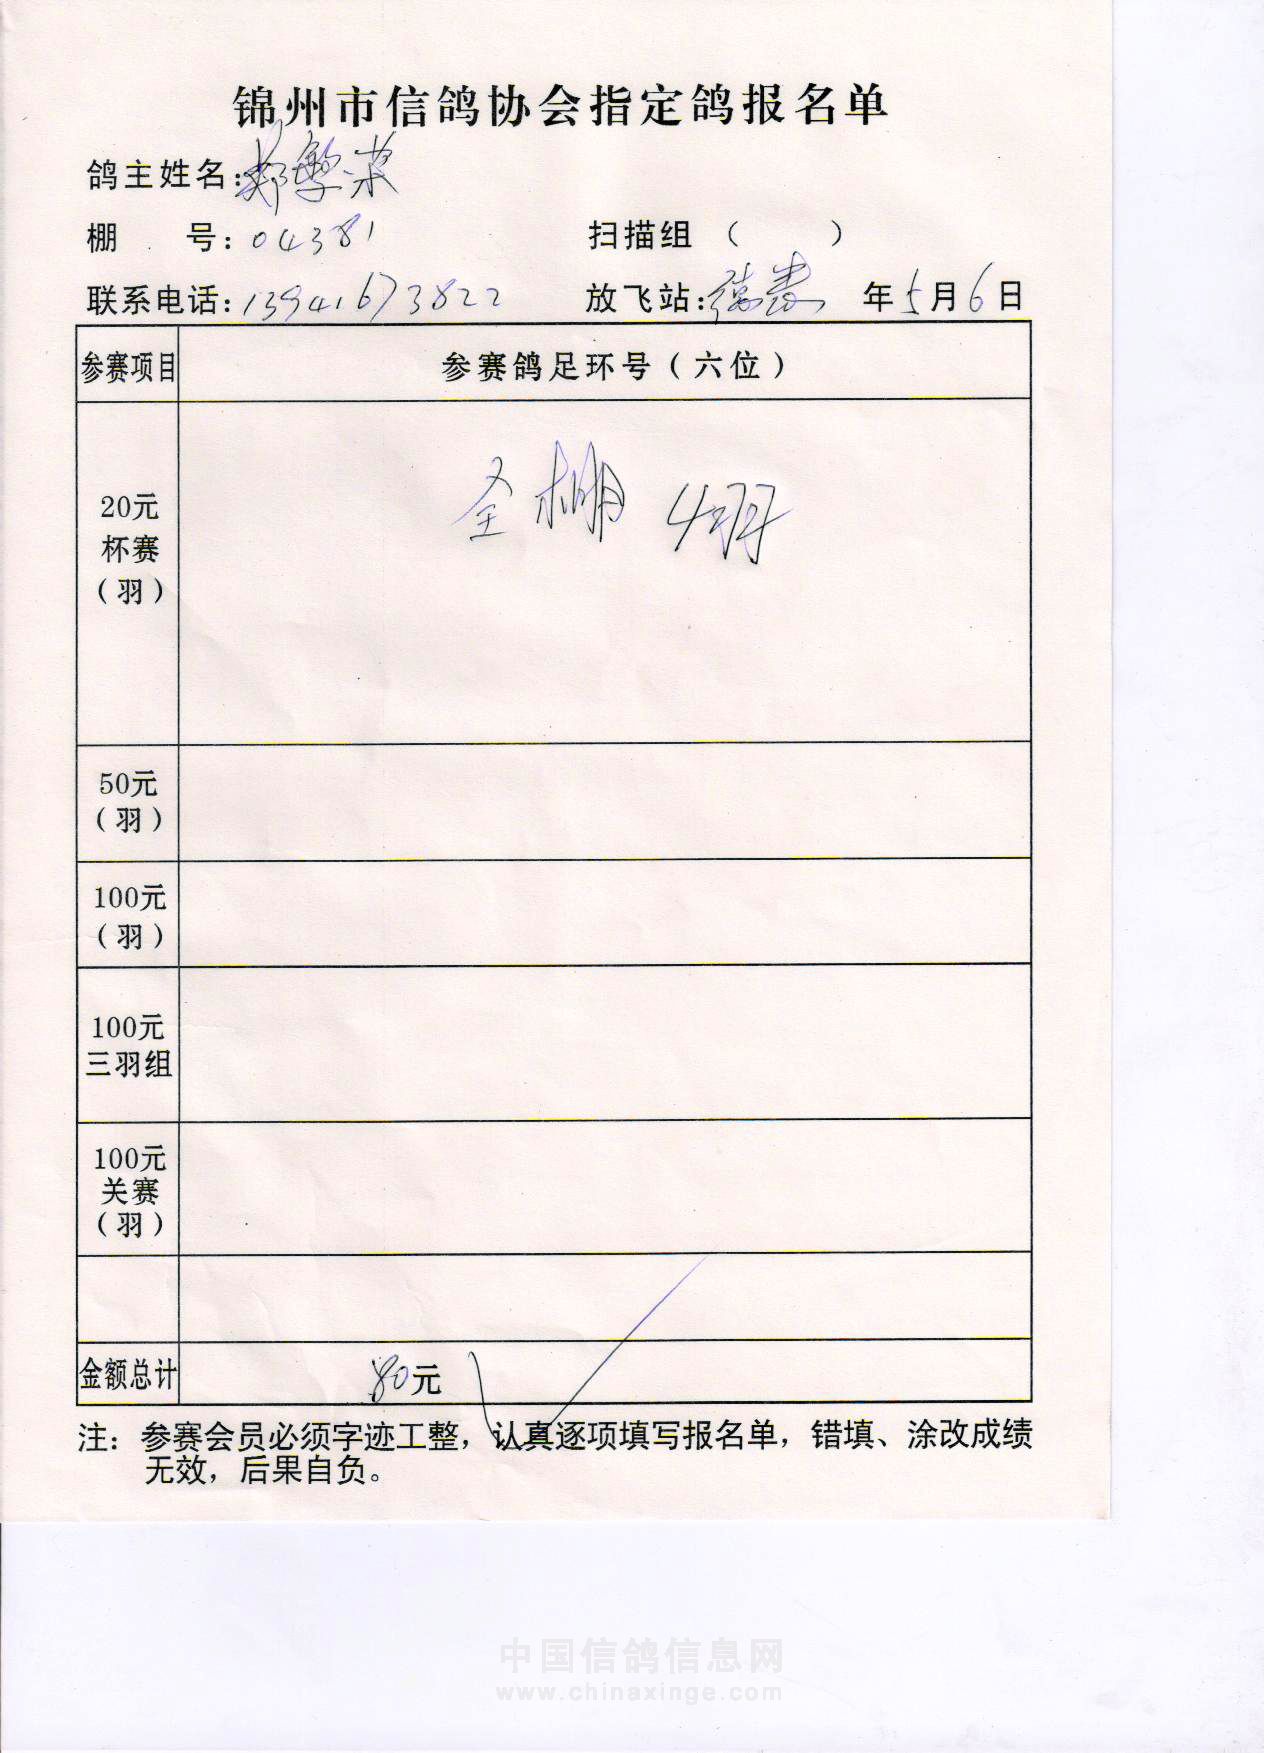 锦州市信鸽协会指定鸽报名单
鸽主姓名:
棚 号: 04381 扫描组 ( )
联系电话: 13941673822 放飞站: 年5月6日
参赛项目 参赛鸽足环号(六位)
20元
杯赛
(羽)
全棚 4羽
50元
(羽)
100元
(羽)
100元
三羽组
100元
关赛
(羽)
金额总计 80元
注: 参赛会员必须字迹工整, 认真逐项填写报名单, 错填、涂改成绩
无效, 后果自负。
中国信鸽信息网
www.chinaxinge.com